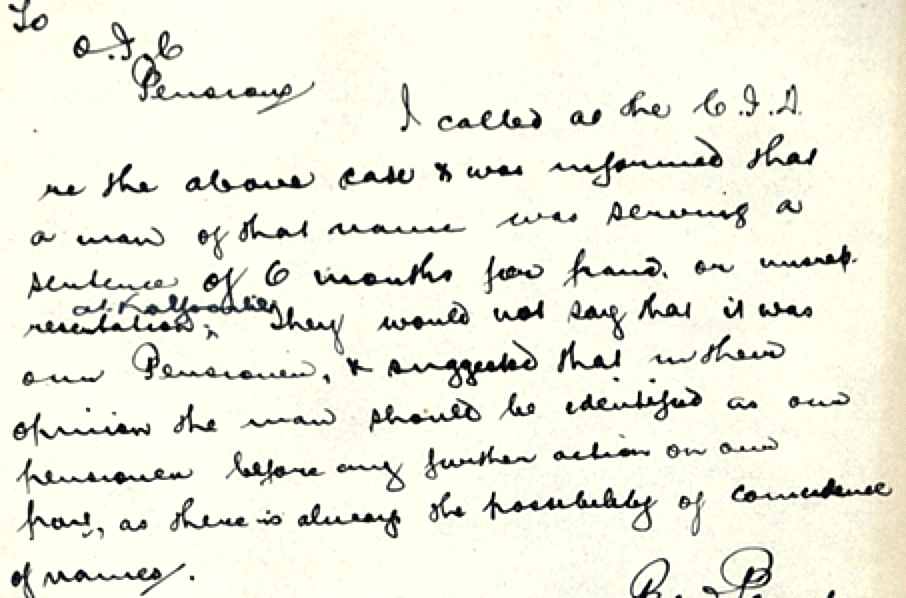 To
O.I.C
Pensions
I called at the C.I.D.
re the above case & was informed that
a man of that name was serving a
sentence of 6 months for fraud. or misrep-
at Kalgoorlie
resentation. They would not say that it was
our Pensioner, & suggested that in their
opinion the man should be identified as our
pensioner before any further action on our
part, as there is always the possibility of coincidence
of names.